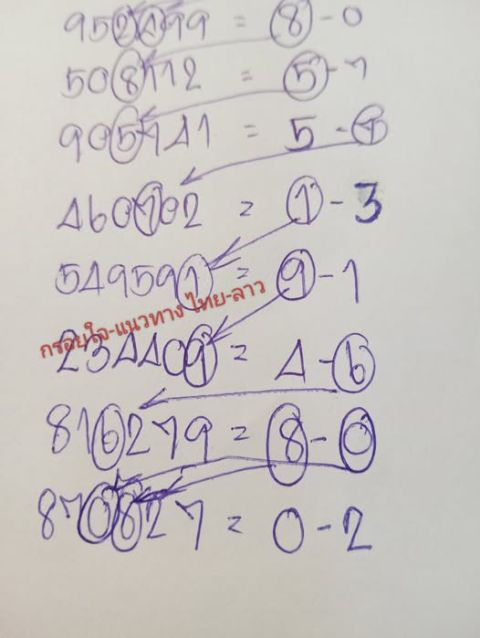 952199 = 8-0
508112 = 5-7
905141 = 5-1
460102 = 1-3
549591 = 9-1
กรอยใจ-แนวทาง ไทย-ลาว
234409 = 4-6
816279 = 8-0
870827 = 0-2